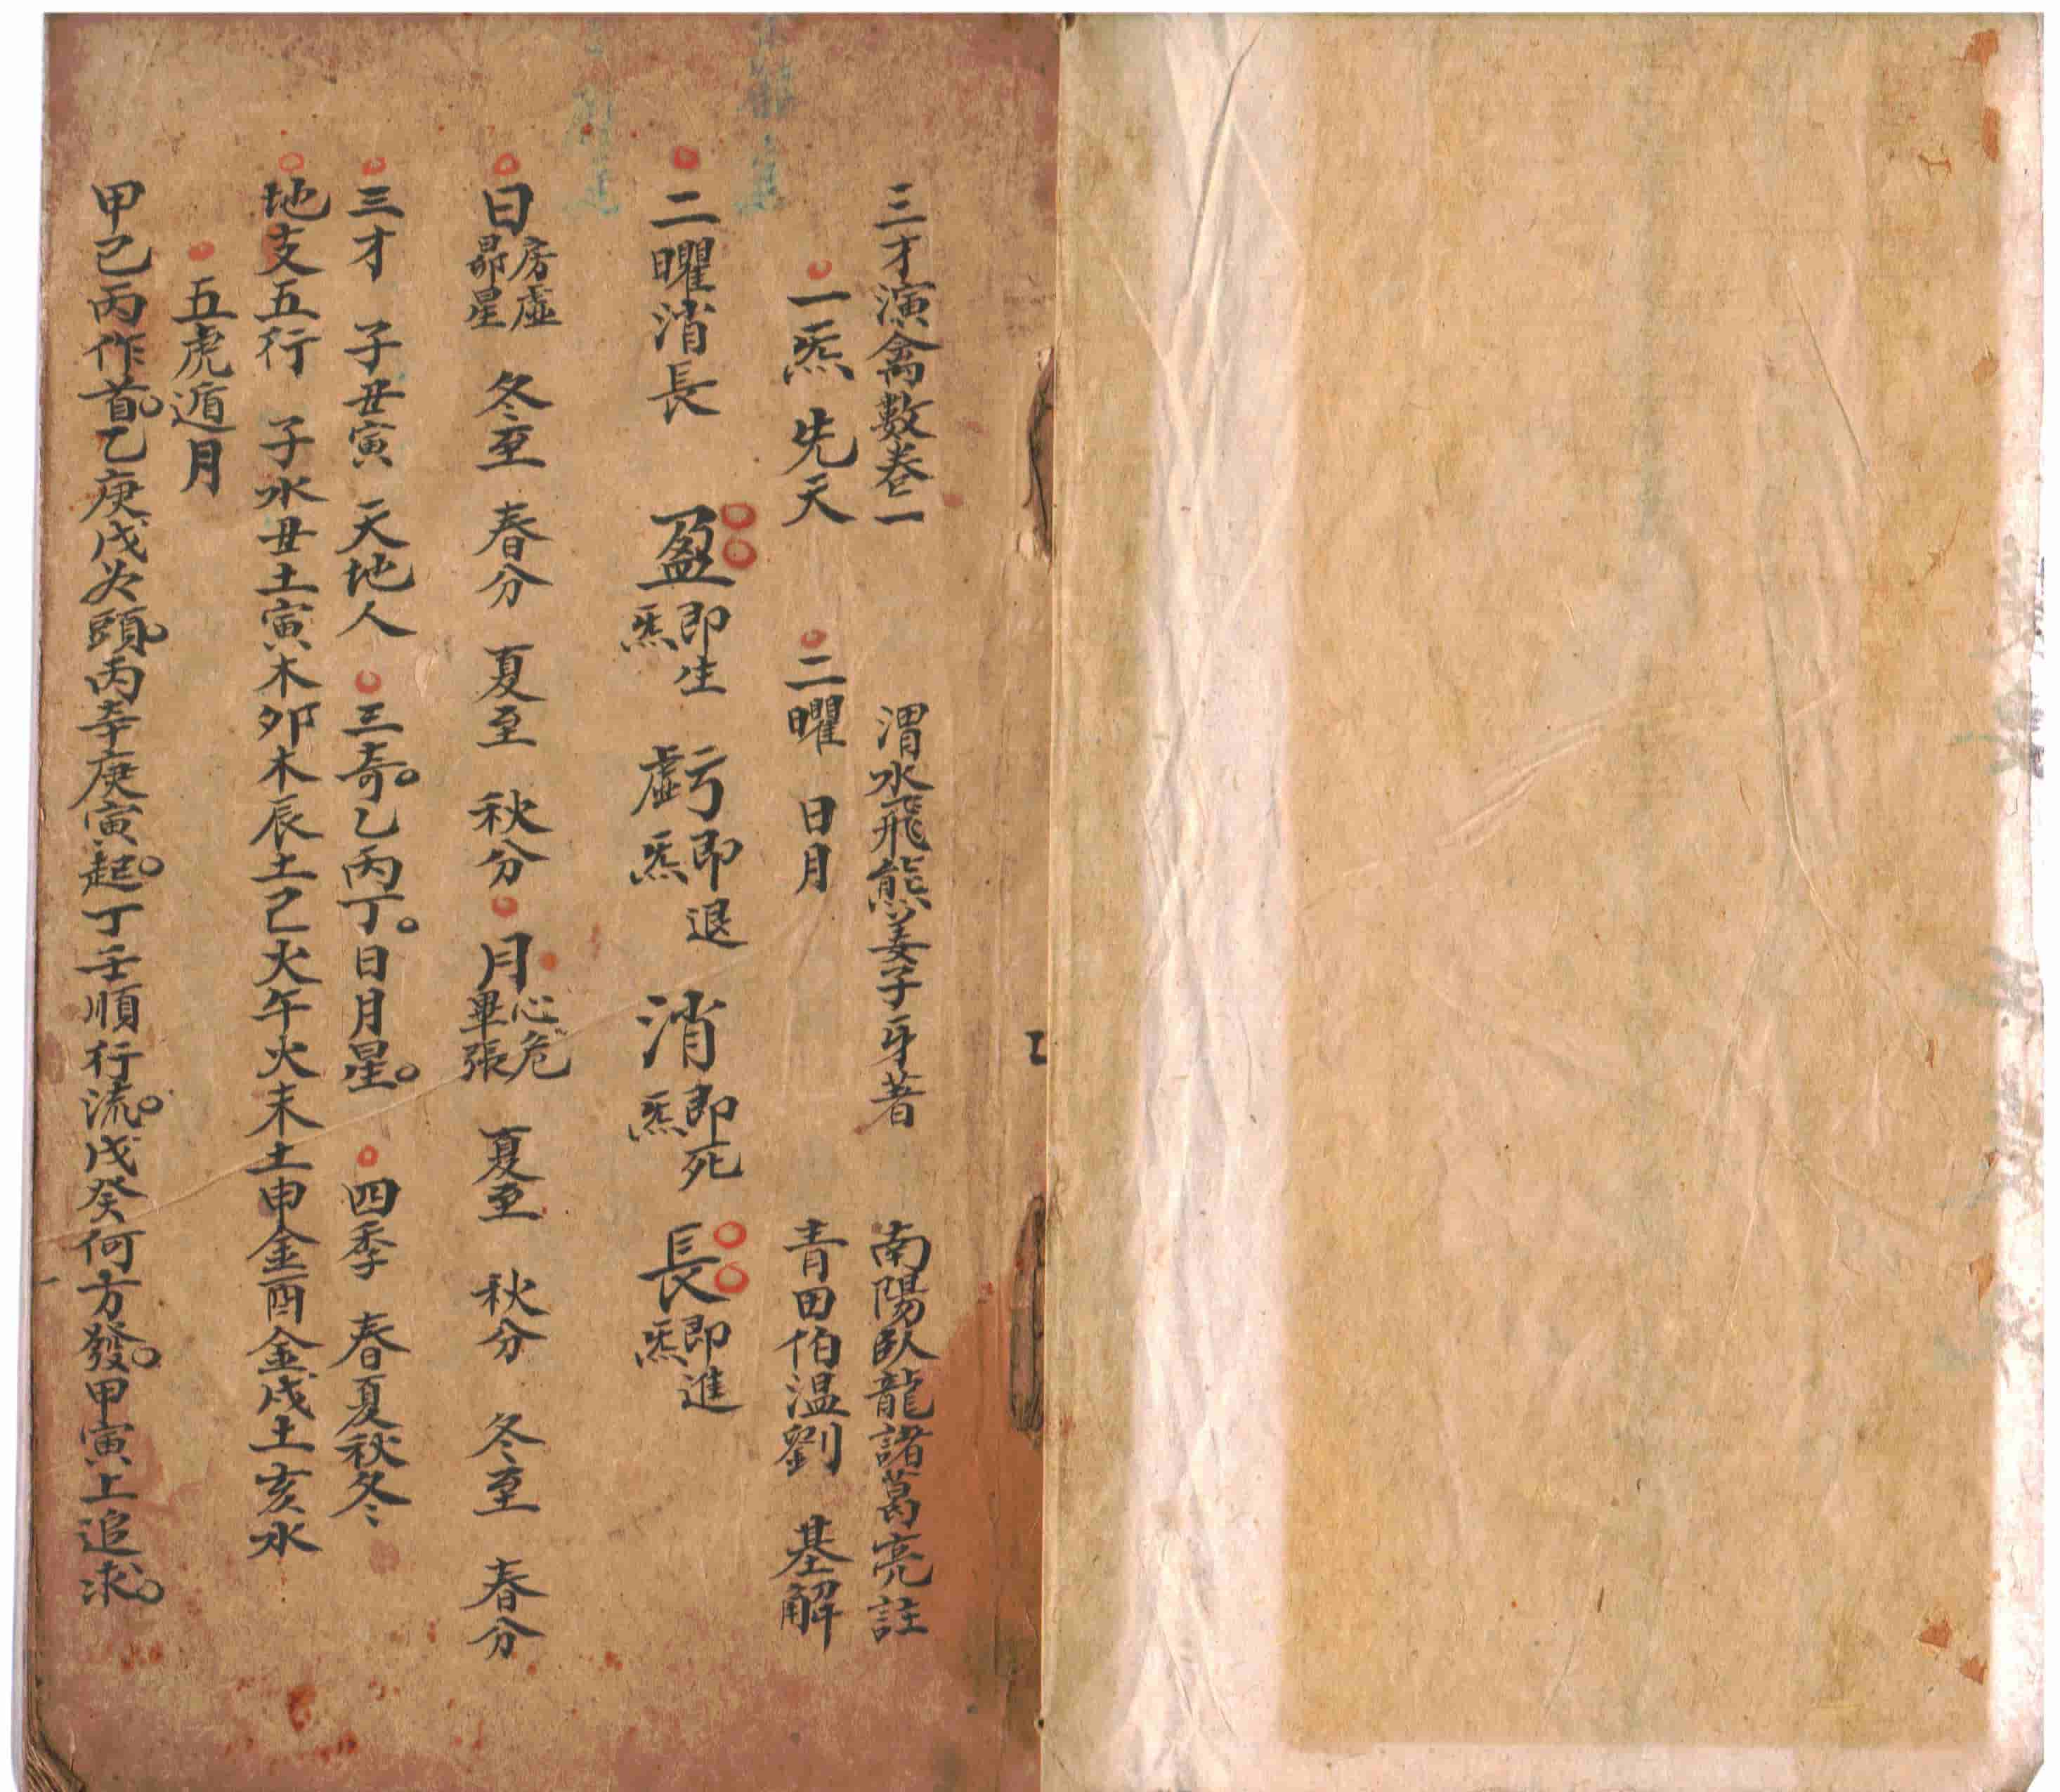 三才演禽數卷一 渭水飛熊姜子牙著 南陽臥龍諸葛亮註
一炁先天 二曜 日月 青田伯温劉 基解
二曜消長 盈即生炁 虧即退炁 消即死炁 長即進炁
日房虛昴星 冬至 春分 夏至 秋分 月心危畢張 夏至 秋分 冬至 春分
三才 子丑寅 天地人 三奇。乙丙丁。日月星。 四季 春夏秋冬
地支五行 子水丑土寅木卯木辰土己火午火未土申金酉金戌土亥水
五虎遁月
甲己丙作首。乙庚戊為頭。丙辛庚寅起。丁壬順行流。戊癸何方發。甲寅上追求。